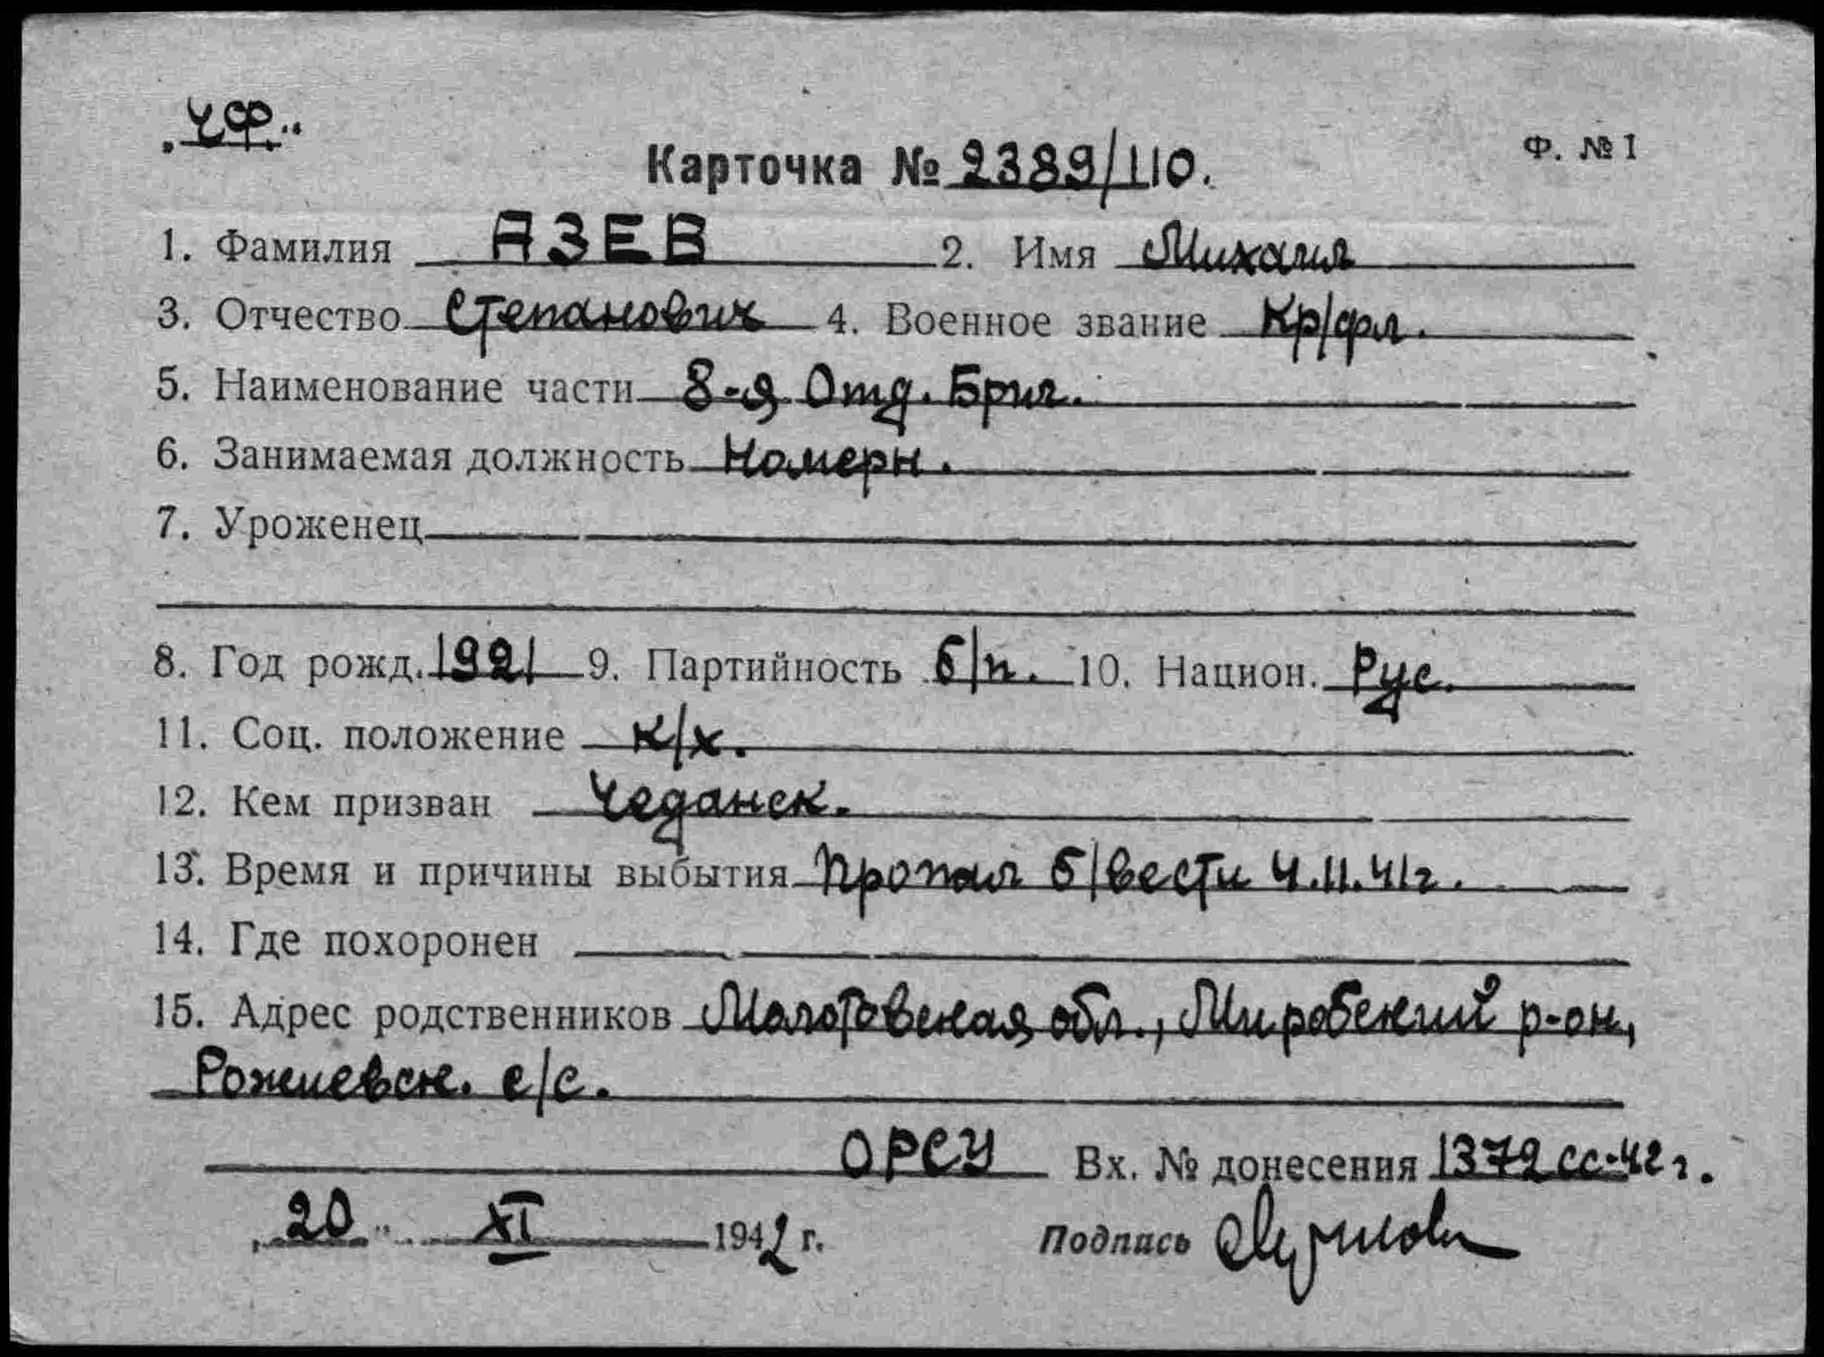 „ЧФ.“
Карточка № 2389/110.
Ф. № 1
1. Фамилия АЗЕВ 2. Имя Михаил
3. Отчество Степанович 4. Военное звание Кр/фл.
5. Наименование части 8-я Отд. Бриг.
6. Занимаемая должность Номерн.
7. Уроженец
8. Год рожд. 1921 9. Партийность б/п. 10. Национ. Рус.
11. Соц. положение к/х.
12. Кем призван Чеданск.
13. Время и причины выбытия Пропал б/вести 4.11.41г.
14. Где похоронен
15. Адрес родственников Молотовская обл., Миробский р-он,
Рожневск. с/с.
ОРСУ Вх. № донесения 1372 сс-42 г.
„20“ XI 1942 г. Подпись